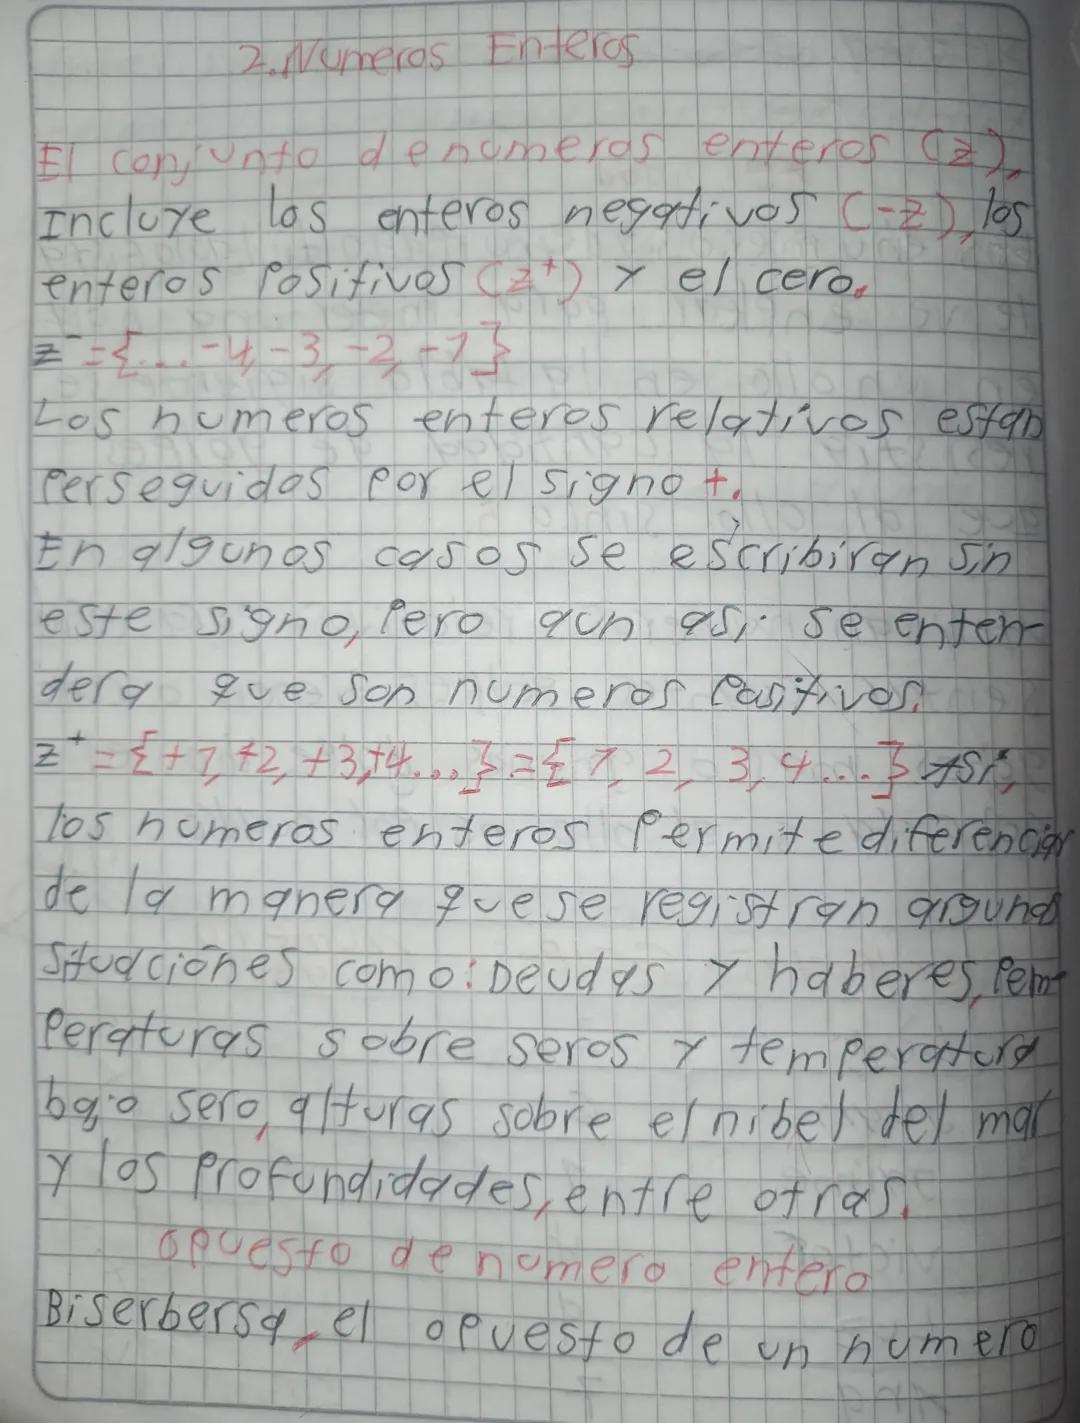 2. Numeros Enteros
El conjunto de numeros enteros (z),
Incluye los enteros negativos (-z), los
enteros Positivos (z⁺) y el cero.
z⁻={... -4, -3, -2, -1}
Los numeros enteros relativos estan
Perseguidos por el signo +.
En algunos casos se escribiran sin
este signo, Pero aun asi se enten-
dera que son numeros Positivos.
z⁺={+1, +2, +3, +4...}={1, 2, 3, 4...} Asi,
los numeros enteros Permite diferenciar
de la manera que se registran argunas
Situaciones como: Deudas y haberes, tem-
Peraturas sobre seros y temperatura
bajo sero, alturas sobre el nibel del mar
y los Profundidades, entre otras.
opuesto de numero entero
Biserbersa, el opuesto de un numero